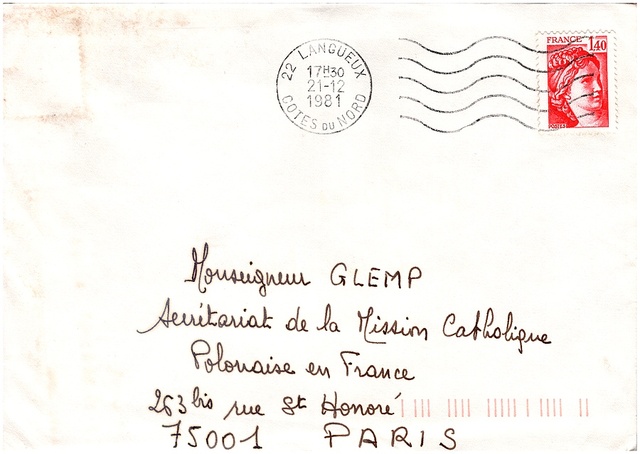 22 LANGUEUX
17H30
21-12
1981
COTES DU NORD
FRANCE 1,40
POSTES
Monseigneur GLEMP
Secrétariat de la Mission Catholique
Polonaise en France
263 bis rue St Honoré
75001 PARIS